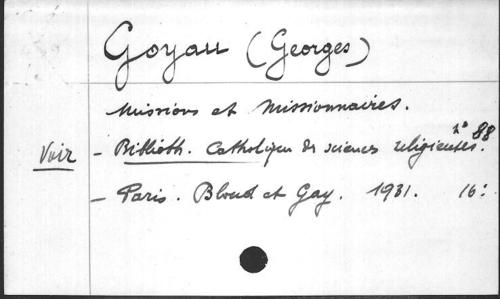 Goyau (Georges)
Missions et Missionnaires.
Voir - Biblioth. Catholique des sciences religieuses. n° 88
- Paris. Bloud et Gay. 1931. 16°.